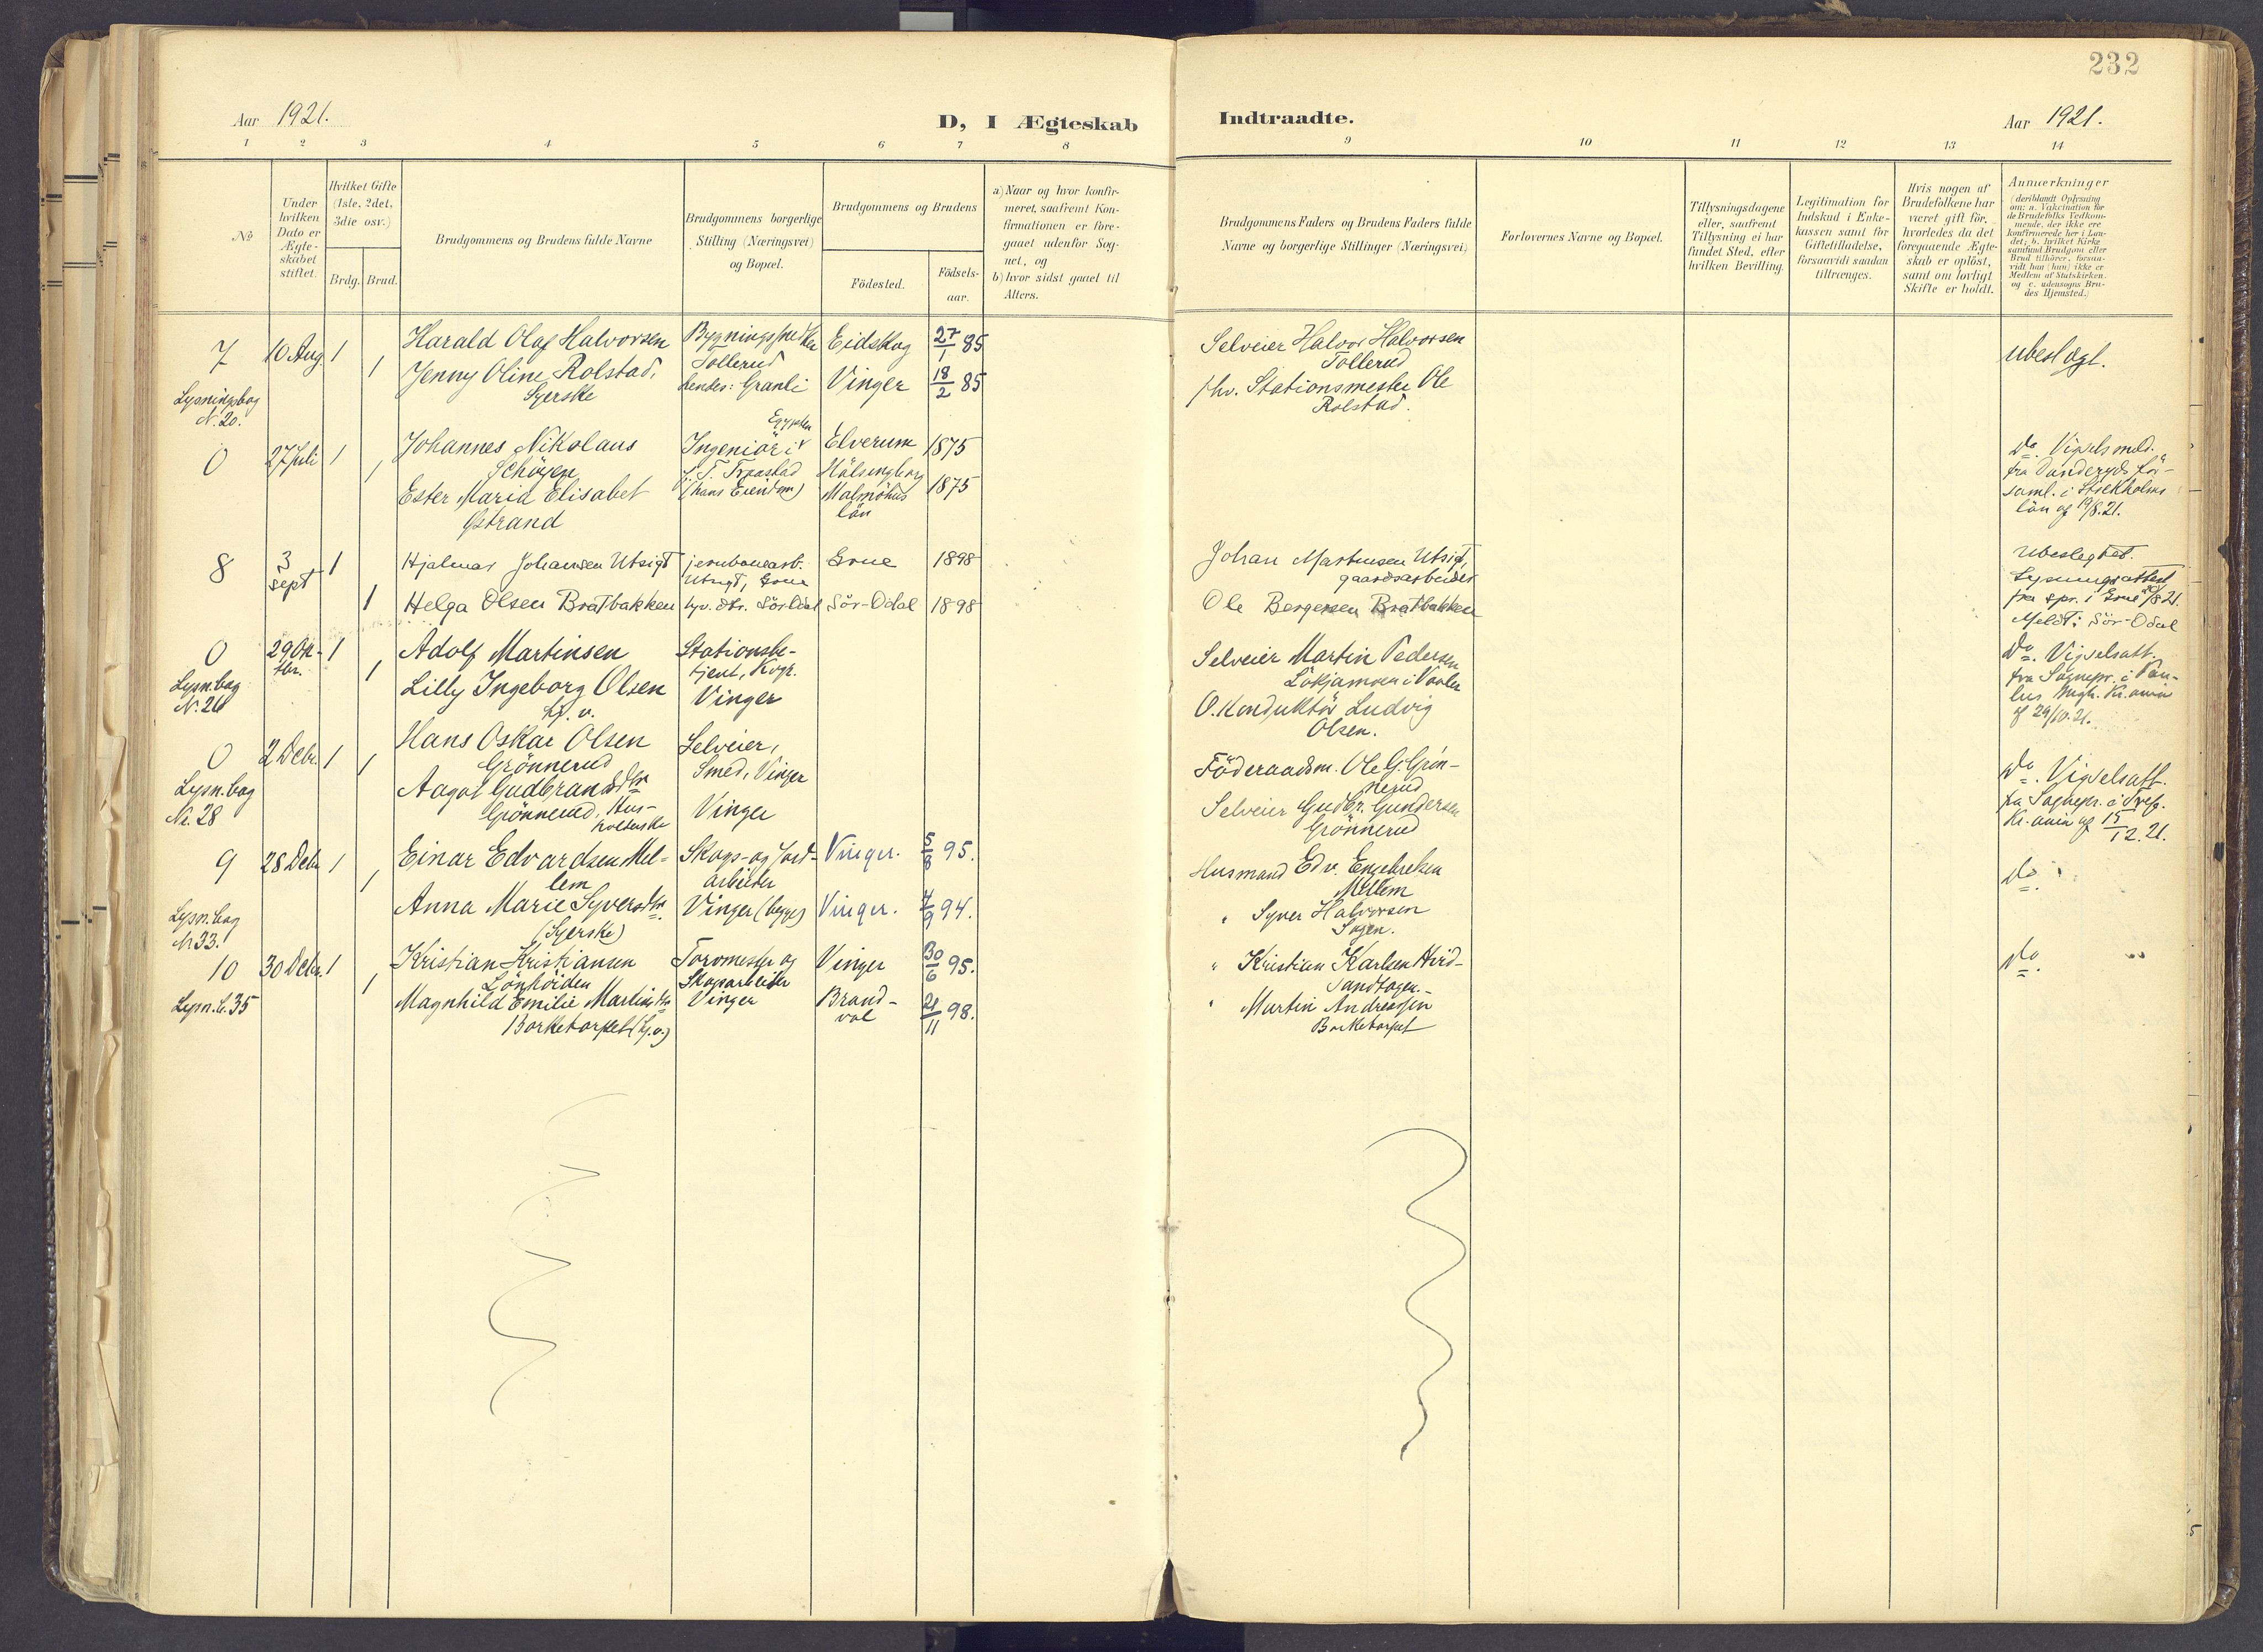 232
Aar 1921.
D, I Ægteskab
Indtraadte.
Aar 1921.
1 2 3 4 5 6 7 8
9 10 11 12 13 14
No
Under hvilken Dato er Ægte-skabet stiftet.
Hvilket Gifte (1ste, 2det, 3die osv.)
Brdg. Brud.
Brudgommens og Brudens fulde Navne
Brudgommens borgerlige Stilling (Næringsvei) og Bopæl.
Brudgommens og Brudens
Födested.
Födsels-aar.
a) Naar og hvor konfir-
meret, saafremt Kon-
firmationen er fore-
gaaet udenfor Sog-
net, og
b) hvor sidst gaaet til
Alters.
Brudgommens Faders og Brudens Faders fulde
Navne og borgerlige Stillinger (Næringsvei)
Forlovernes Navne og Bopæl.
Tillysningsdagene
eller, saafremt
Tillysning ei har
fundet Sted, efter
hvilken Bevilling.
Legitimation for
Indskud i Enke-
kassen samt for
Giftetilladelse,
forsaavidt saadan
tiltrænges.
Hvis nogen af
Brudefolkene har
været gift för,
hvorledes da det
foregaaende Ægte-
skab er oplöst,
samt om lovligt
Skifte er holdt.
Anmærkninger
(deriblandt Oplysning
om: a. Vakcination for
de Brudefolks Vedkom-
mende, der ikke ere
konfirmerede her i Lan-
det; b. hvilket Kirke-
samfund Brudgom eller
Brud tilhörer, forsaa-
vidt han (hun) ikke er
Medlem af Statskirken.
og c. udensogns Bru-
des Hjemsted.)
7 10 Aug. 1 Harald Olaf Halvorsen Eidskog 27/1 85
Tollerud
1 Jenny Oline Rolstad, hendes: Granli Vinger 18/2 85
Syerske
Lysningsbog
N. 20.
Selveier Halvor Halvorsen
Tollerud
fhv. Stationsmester Ole
Rolstad.
ubeslægt.
0 27 Juli 1 Johannes Nikolaus Ingeniör i Elverum 1875
Schöyen
(hans Eiendom)
1 Ester Maria Elisabet Malmöhus 1875
Østrand län
Hälsingborg
do. Vigselsmeld.
fra Danderyds för-
saml. i Stockholms
län af 19/8.21.
8 3 sept 1 Hjalmar Johansen Utsigt jernbanearb. Grue 1898
Utsigt, Grue
1 Helga Olsen Bratbakken Sör-Odal 1898
Johan Martinsen Utsigt,
gaardsarbeider
Ole Bergersen Bratbakken
Ubeslegtet.
Lysningsattest
fra spr. i Grue
Meldt: Sör-Odal
0 29 Ok-tbr. 1 Adolf Martinsen Stationsbe-
tjent, Kvgr.
1 Lilly Ingeborg Olsen Vinger
Hj. v.
Lysn.bog
N. 26
Selveier Martin Pedersen
O. Konduktör Ludvig
Olsen.
do. Vigselsatt.
fra Sognepr. i Pau-
lus mgh. Kr.ania
af 29/10.21.
0 2 Debr. 1 Hans Oskar Olsen Selveier,
Grönnerud Smed, Vinger
1 Aagot Gudbrandsdtr
Grönnerud, Hus- Vinger
holderske
Lysn.bog
Nr. 28
Föderaadsm. Ole G. Grön-
nerud
Selveier Gudbr. Gundersen
Grönnerud
do. Vigselsatt.
fra Sognepr. i Tref.
Kr.ania af 15/12.21.
9 28 Debr 1 Einar Edvardsen Mel- Skogs- og Jord- Vinger. 5/8 95.
lem arbeider
1 Anna Marie Syversdtr. Vinger (begge) Vinger. 7/9 94.
(Syerske)
Lysn.bog
Nr 33.
Husmand Edv. Engebretsen
Mellem
" Syver Halvorsen
Sagen.
do.
10 30 Debr. 1 Kristian Kristiansen Torvmester og Vinger 30/6 95.
Lönhöiden Skogsarbeider
1 Magnhild Emilie Martinsdtr Vinger Brand- 21/11 98.
Borketorpet (Hj.v.) val
Lysn. b. 35
" Kristian Karlsen Hvid-
" Martin Andreassen
Borketorpet
do